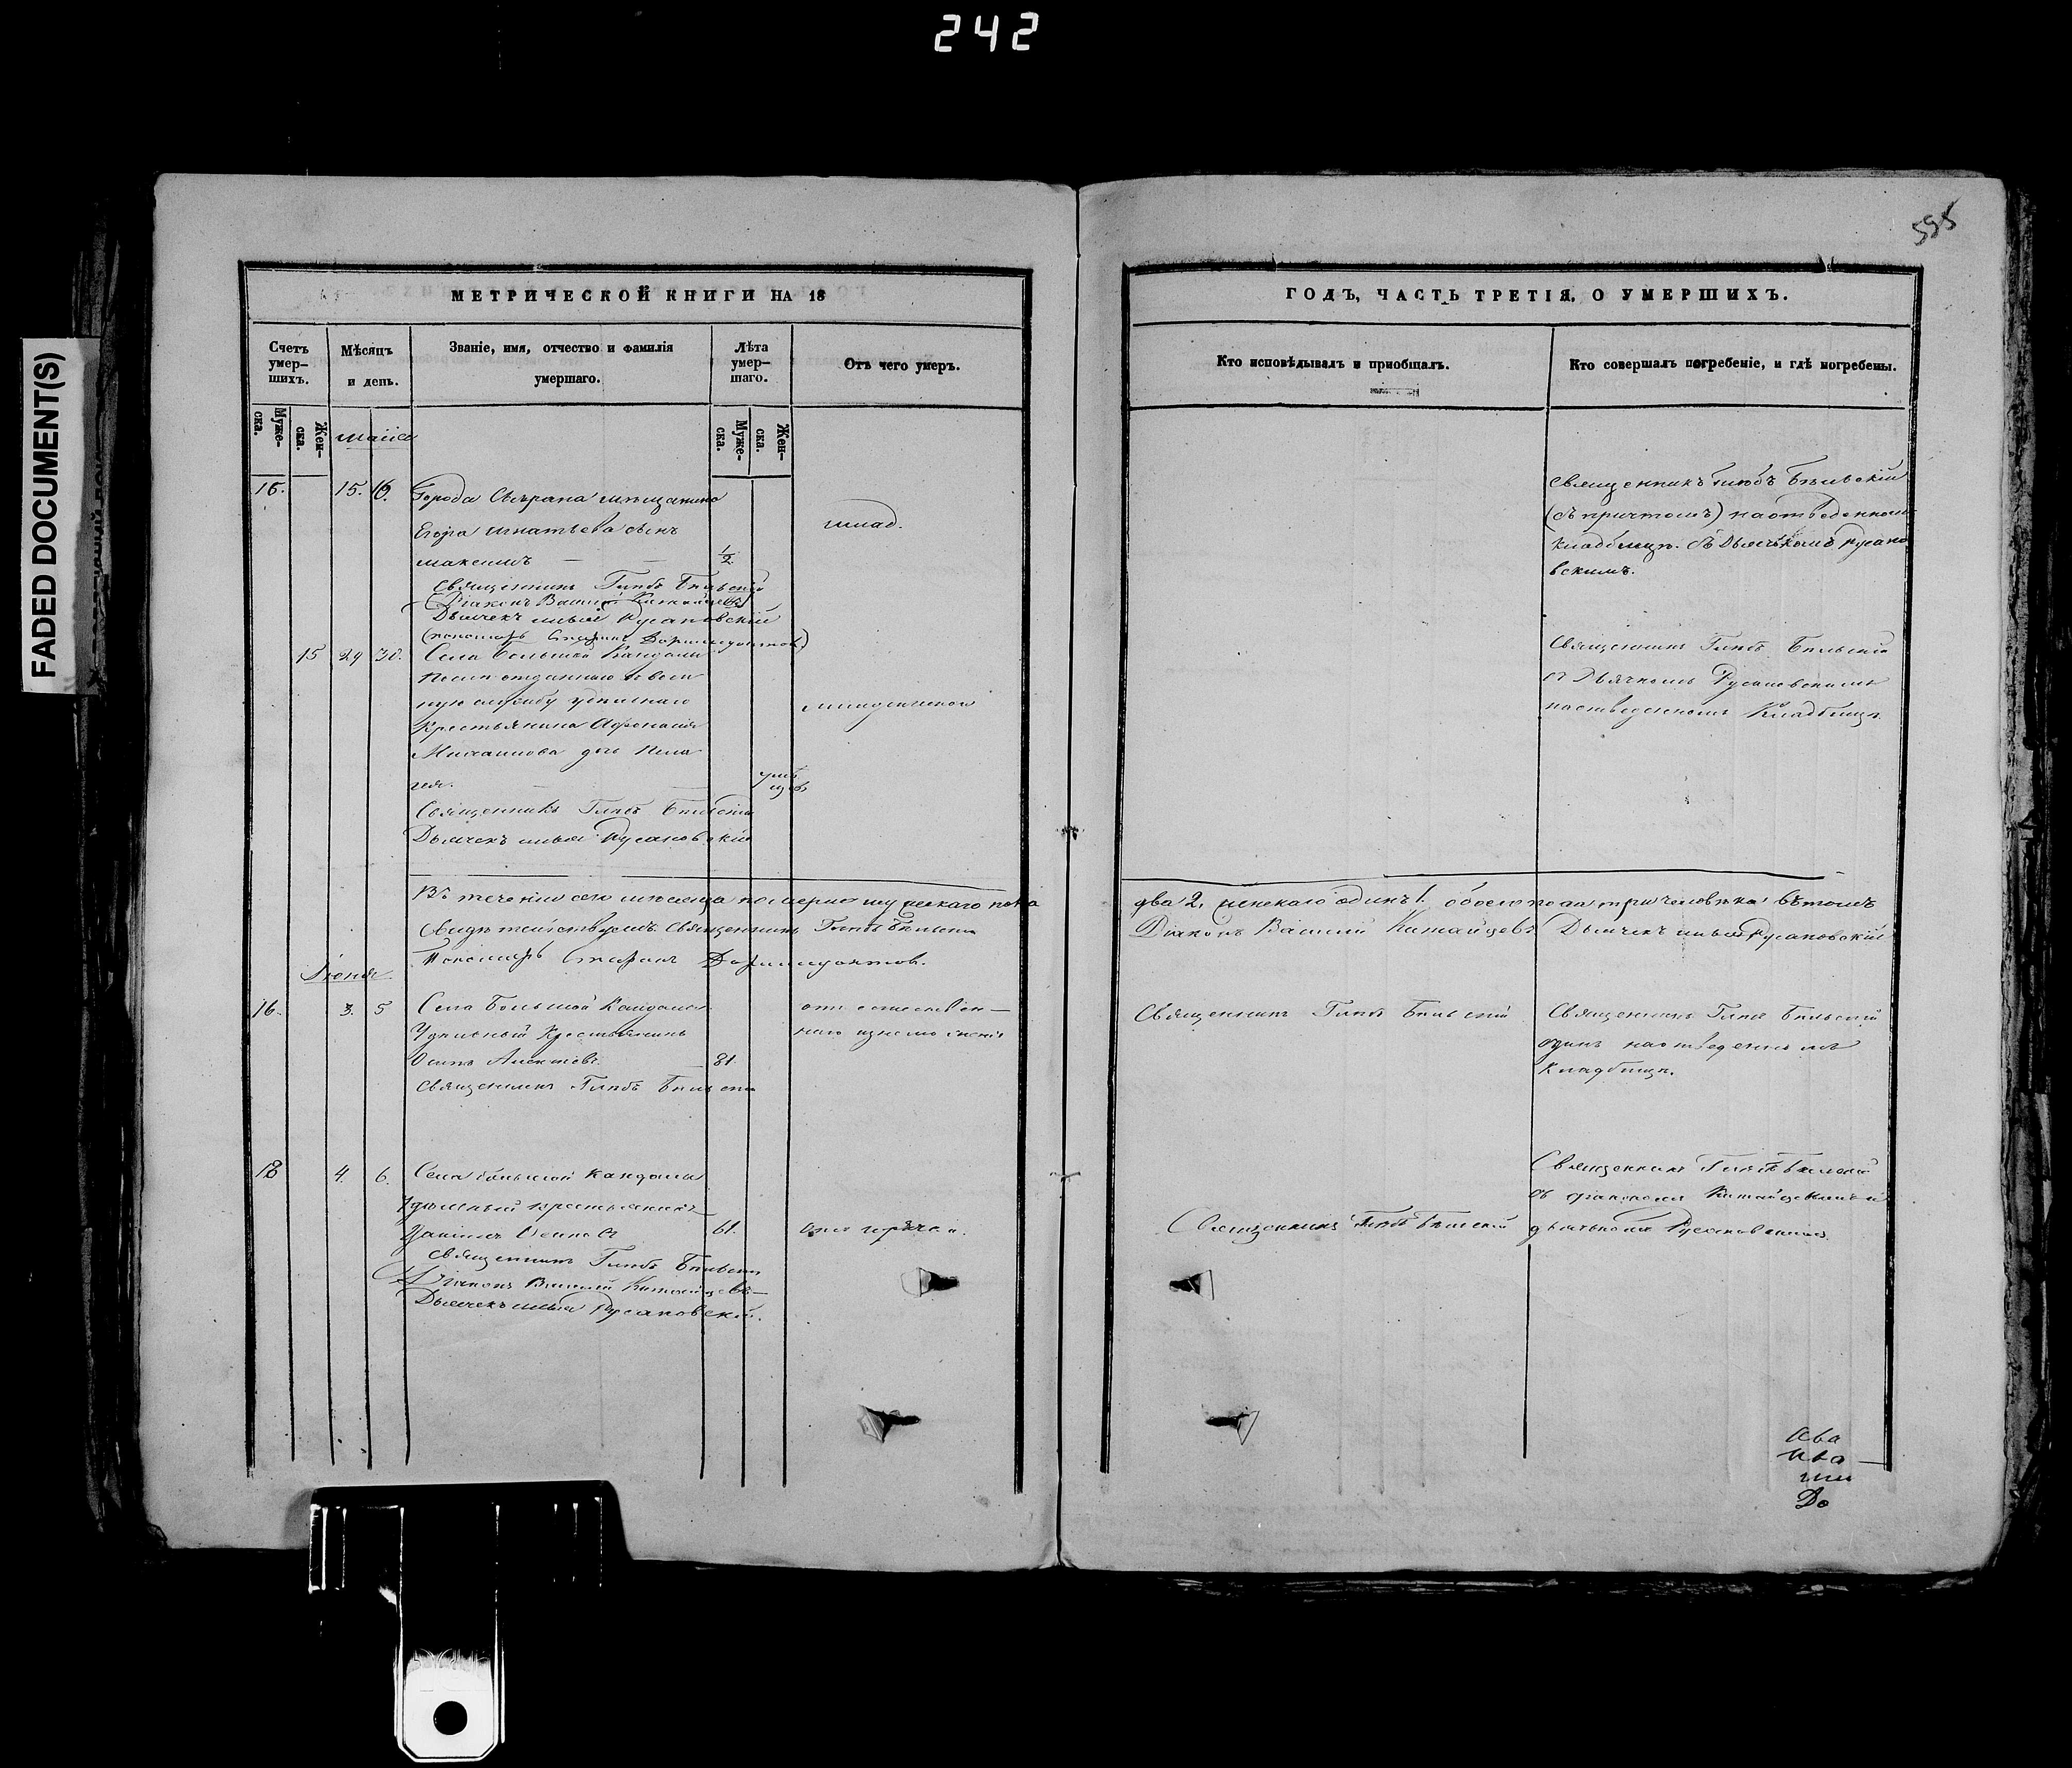 242
FADED DOCUMENT(S)
595
МЕТРИЧЕСКОЙ КНИГИ НА 18
ГОДЪ, ЧАСТЬ ТРЕТІЯ, О УМЕРШИХЪ.
Счетъ умер-шихъ.
Мѣсяцъ и день.
Званіе, имя, отчество и фамилія умершаго.
Лѣта умер-шаго.
Отъ чего умеръ.
Кто исповѣдывалъ и пріобщалъ.
Кто совершалъ погребеніе, и гдѣ погребены.
Муже-ска.
Жен-ска.
Муже-ска.
Жен-ска.
маія
15. 16. Города Сызрана мѣщанина
Егора Игнатьева сынъ
Максимъ 1/2
млад.
Священникъ Глѣбъ Бѣльскій
(съ причтомъ) на отведенномъ
кладбищѣ. съ Дьячкомъ Русано
вскимъ.
Священникъ Глѣбъ Бѣльскій
Діаконъ Василій Китайцевъ
Дьячекъ Илья Русановскій
(пономарь Стефанъ Доримедонтовъ)
15 29 30. Села Большой Кандалы
послѣ отданнаго въ воен
ную службу удѣльнаго
крестьянина Афонасія
Михаилова дочь Пела
гея.
младенческой
Священникъ Глѣбъ Бѣльскій
съ Дьячкомъ Русановскимъ
на отведенномъ Кладбищѣ
Священникъ Глѣбъ Бѣльскій
Дьячекъ Илья Русановскій
Въ теченіи сего мѣсяца померло мужескаго пола два 2, женскаго одинъ 1. обоего пола три человѣка въ томъ
Свидѣтельствуемъ Священникъ Глѣбъ Бѣльскій Діаконъ Василій Китайцевъ Дьячекъ Илья Русановскій
Пономарь Стефанъ Доримедонтовъ.
Іюня
16. 3. 5 Села Большой Кандалы
Удѣльный Крестьянинъ
Осипъ Алексѣевъ 81
Священникъ Глѣбъ Бѣльскій
отъ естествен-
наго изнеможенія
Священникъ Глѣбъ Бѣльскій
Священникъ Глѣбъ Бѣльскій
одинъ на отведенномъ
кладбищѣ.
18 4. 6. Села Большой Кандалы
удѣльный крестьянинъ
Данилъ Осиповъ 61.
отъ горячки.
Священникъ Глѣбъ Бѣльскій
Священникъ Глѣбъ Бѣльскій
съ діакономъ Китайцевымъ и
дьячькомъ Русановскимъ
Священникъ Глѣбъ Бѣльскій
Діаконъ Василій Китайцевъ
Дьячекъ Илья Русановскій.
До